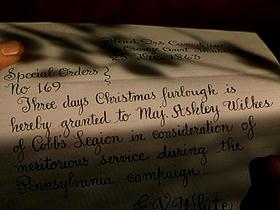 Head Qrs Cavalry
Orange Court House
Dec 1863
Special Orders
No 169
Three days Christmas furlough is
hereby granted to Maj. Ashley Wilkes
of Cobb's Legion in consideration of
meritorious service during the
Pennsylvania campaign.